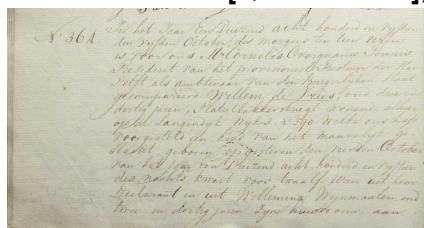 N° 364
In het Jaar een Duizend acht honderd en vyftien
den vyfden October des morgens ten tien uren
is voor ons Mr Cornelis
President van het provisioneel Bestuur der Stad
Delft als ambtenaar van den Burgerlyken Staat
gecompareerd Willem de Vries, oud drie en
dertig jaren, Plateelbakkersknegt wonende alhier
op het Langendyk Wyk 5 N° 390 welke ons heeft
voorgesteld een kind van het mannelyk ge-
slacht geboren op gisteren den vierden October
van het jaar een Duizend acht honderd en vyftien
des nachts kwart voor twaalf Uren uit hem
Declarant en uit Willemina Wynmaalen oud
twee en dertig jaren Zyne huisvrouw, aan